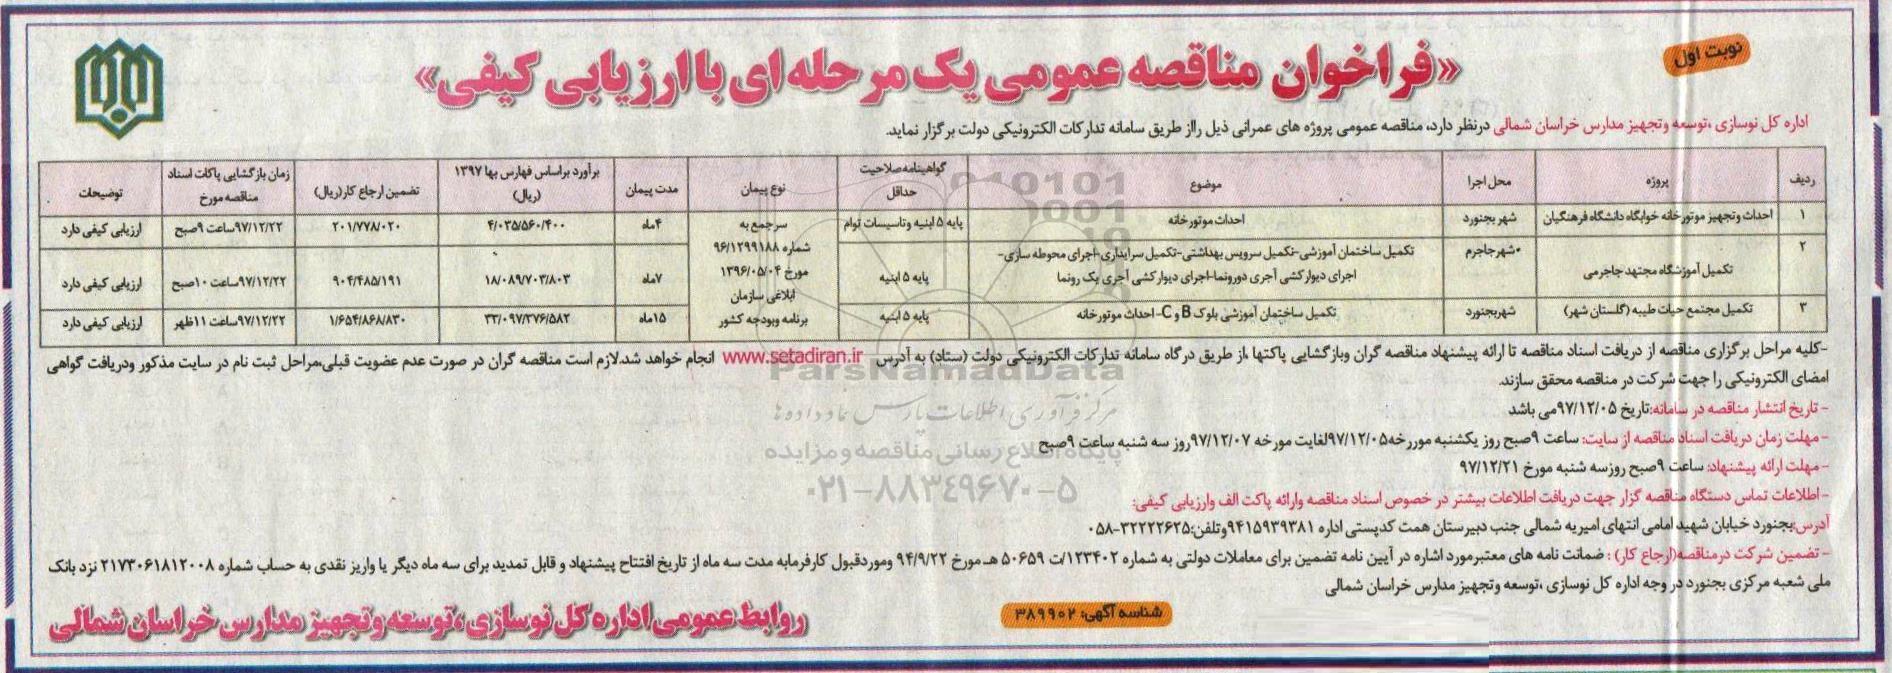 نوبت اول
«فراخوان مناقصه عمومی یک مرحله ای با ارزیابی کیفی»
اداره کل نوسازی ،توسعه وتجهیز مدارس خراسان شمالی درنظر دارد، مناقصه عمومی پروژه های عمرانی ذیل رااز طریق سامانه تدارکات الکترونیکی دولت برگزار نماید.
ردیف پروژه محل اجرا موضوع گواهینامه صلاحیت حداقل نوع پیمان مدت پیمان برآورد براساس فهارس بها ۱۳۹۷ (ریال) تضمین ارجاع کار(ریال) زمان بازگشایی پاکات اسناد مناقصه مورخ توضیحات
۱ احداث وتجهیز موتورخانه خوابگاه دانشگاه فرهنگیان شهر بجنورد احداث موتورخانه پایه ۵ ابنیه وتاسیسات توام سرجمع به شماره ۹۶/۱۲۹۹۱۸۸ مورخ ۱۳۹۶/۰۵/۰۴ ابلاغی سازمان برنامه وبودجه کشور ۴ماه ۴/۰۳۵/۵۶۰/۴۰۰ ۲۰۱/۷۷۸/۰۲۰ ۹۷/۱۲/۲۲ساعت ۹صبح ارزیابی کیفی دارد
۲ تکمیل آموزشگاه مجتهد جاجرمی شهر جاجرم تکمیل ساختمان آموزشی-تکمیل سرویس بهداشتی-تکمیل سرایداری-اجرای محوطه سازی-اجرای دیوارکشی آجری دورونما-اجرای دیوارکشی آجری یک رونما پایه ۵ ابنیه ۷ماه ۱۸/۰۸۹/۷۰۳/۸۰۳ ۹۰۴/۴۸۵/۱۹۱ ۹۷/۱۲/۲۲ساعت ۱۰صبح ارزیابی کیفی دارد
۳ تکمیل مجتمع حیات طیبه (گلستان شهر) شهربجنورد تکمیل ساختمان آموزشی بلوک B و C-احداث موتورخانه پایه ۵ ابنیه ۱۵ماه ۳۳/۰۹۷/۳۷۶/۵۸۲ ۱/۶۵۴/۸۶۸/۸۳۰ ۹۷/۱۲/۲۲ساعت ۱۱ظهر ارزیابی کیفی دارد
-کلیه مراحل برگزاری مناقصه از دریافت اسناد مناقصه تا ارائه پیشنهاد مناقصه گران وبازگشایی پاکتها ،از طریق درگاه سامانه تدارکات الکترونیکی دولت (ستاد) به آدرس www.setadiran.ir انجام خواهد شد.لازم است مناقصه گران در صورت عدم عضویت قبلی،مراحل ثبت نام در سایت مذکور ودریافت گواهی
امضای الکترونیکی را جهت شرکت در مناقصه محقق سازند.
- تاریخ انتشار مناقصه در سامانه:تاریخ ۹۷/۱۲/۰۵می باشد
-مهلت زمان دریافت اسناد مناقصه از سایت: ساعت ۹صبح روز یکشنبه مورخه۹۷/۱۲/۰۵لغایت مورخه ۹۷/۱۲/۰۷روز سه شنبه ساعت ۹صبح
-مهلت ارائه پیشنهاد: ساعت ۹صبح روزسه شنبه مورخ ۹۷/۱۲/۲۱
-اطلاعات تماس دستگاه مناقصه گزار جهت دریافت اطلاعات بیشتر در خصوص اسناد مناقصه وارائه پاکت الف وارزیابی کیفی:
آدرس:بجنورد خیابان شهید امامی انتهای امیریه شمالی جنب دبیرستان همت کدپستی اداره ۹۴۱۵۹۳۹۳۸۱وتلفن:۳۲۲۲۲۶۲۵-۰۵۸
- تضمین شرکت درمناقصه(ارجاع کار) : ضمانت نامه های معتبرمورد اشاره در آیین نامه تضمین برای معاملات دولتی به شماره ۱۲۳۴۰۲/ت ۵۰۶۵۹ هـ مورخ ۹۴/۹/۲۲ وموردقبول کارفرمابه مدت سه ماه از تاریخ افتتاح پیشنهاد و قابل تمدید برای سه ماه دیگر یا واریز نقدی به حساب شماره ۲۱۷۳۰۶۱۸۱۲۰۰۸ نزد بانک
ملی شعبه مرکزی بجنورد در وجه اداره کل نوسازی ،توسعه وتجهیز مدارس خراسان شمالی
شناسه آگهی: ۳۸۹۹۰۲
روابط عمومی اداره کل نوسازی،توسعه وتجهیز مدارس خراسان شمالی
ParsNamadData
مرکز فرآوری اطلاعات پارس نماد داده ها
پایگاه اطلاع رسانی مناقصه و مزایده
۰۲۱-۸۸۳۴۹۶۷۰-۵